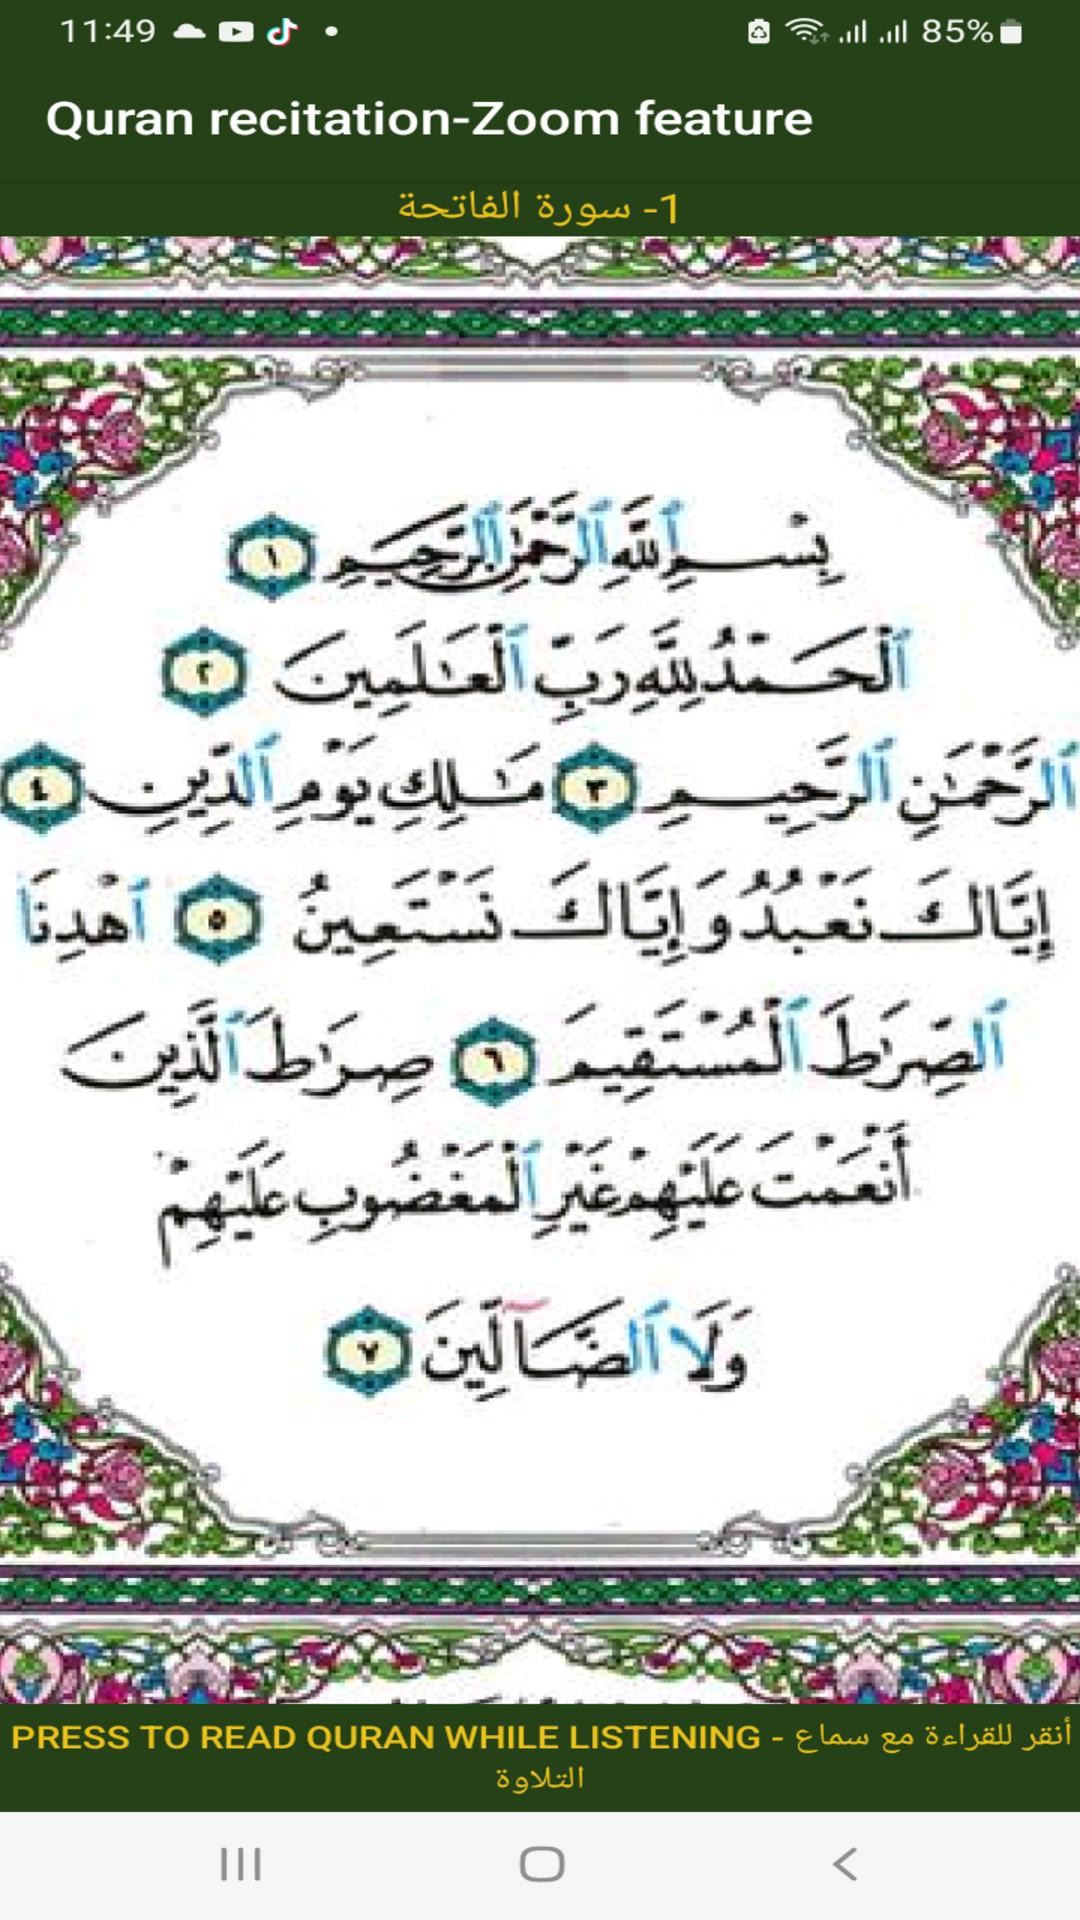 11:49
85%
Quran recitation-Zoom feature
1- سورة الفاتحة
بِسْمِ ٱللَّهِ ٱلرَّحْمَٰنِ ٱلرَّحِيمِ ١
ٱلْحَمْدُ لِلَّهِ رَبِّ ٱلْعَٰلَمِينَ ٢
ٱلرَّحْمَٰنِ ٱلرَّحِيمِ ٣ مَٰلِكِ يَوْمِ ٱلدِّينِ ٤
إِيَّاكَ نَعْبُدُ وَإِيَّاكَ نَسْتَعِينُ ٥ ٱهْدِنَا
ٱلصِّرَٰطَ ٱلْمُسْتَقِيمَ ٦ صِرَٰطَ ٱلَّذِينَ
أَنْعَمْتَ عَلَيْهِمْ غَيْرِ ٱلْمَغْضُوبِ عَلَيْهِمْ
وَلَا ٱلضَّآلِّينَ ٧
PRESS TO READ QURAN WHILE LISTENING - أنقر للقراءة مع سماع
التلاوة